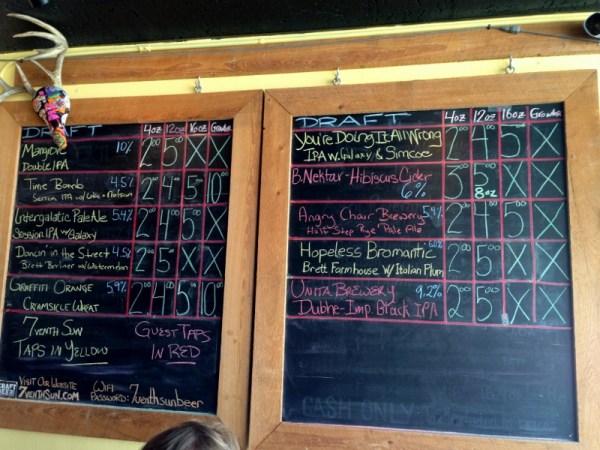 DRAFT 4oz 12oz 16oz Growler
Mangrove 10% 2.00 5.00 X X
Double IPA
Time Bomb 4.5% 2.00 4.00 5.00 10.00
Session IPA w/
Intergalactic Pale Ale 5.4% 2.00 4.00 5.00 X
Session IPA w/ Galaxy
Dancin in the Street 4.5% 2.00 5.00 X X
Brett Berliner w/ Watermelon
Graffiti Orange 5.9% 2.00 4.00 5.00 10.00
Creamsicle Wheat
7venth Sun
Taps in Yellow
Guest Taps
In Red
CRAFT BEER
Visit Our Website
7venthSun.com
Wifi
Password: 7venthsunbeer
DRAFT 4oz 12oz 16oz Growler
You're Doing It All Wrong 2.00 4.00 5.00 X
IPA w/ Galaxy & Simcoe
B. Nektar - Hibiscus Cider 3.00 5.00 X X
6% 8oz
Angry Chair Brewery 5.4% 2.00 4.00 5.00 X
Half Step Rye Pale Ale
Hopeless Bromantic 6.0% 2.00 5.00 X X
Brett Farmhouse w/ Italian Plum
Uinta Brewery 9.2% 2.00 5.00 X X
Dubhe - Imp. Black IPA
CASH ONLY